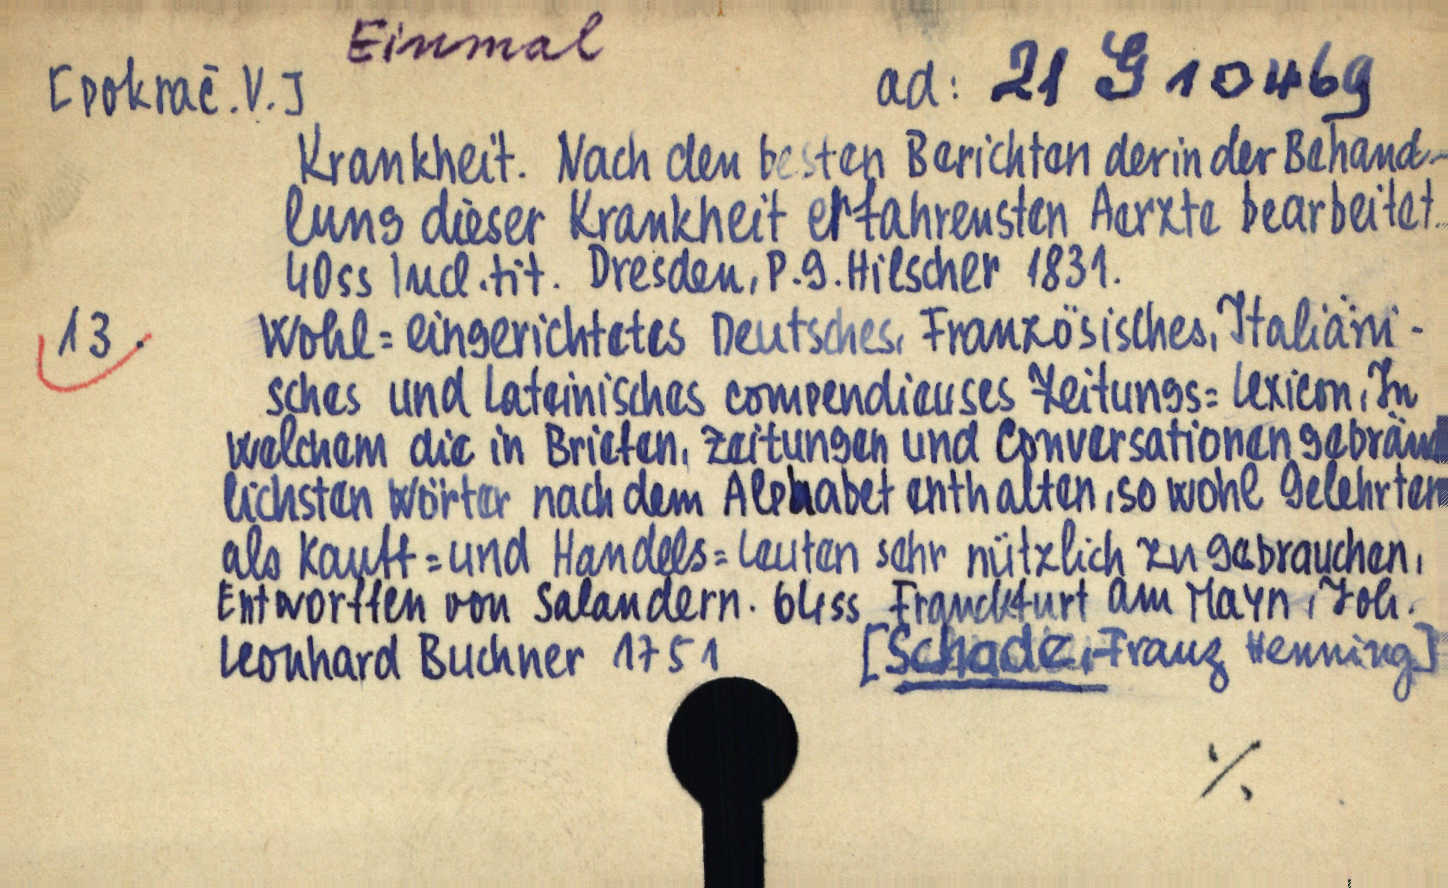 Einmal
[pokrač. V.] ad: 21 G 10469
Krankheit. Nach den besten Berichten der in der Behand-
lung dieser Krankheit erfahrensten Aerzte bearbeitet.
40 ss Incl. tit. Dresden, P. G. Hilscher 1831.
13. Wohl=eingerichtetes Deutsches, Französisches, Italiäni-
sches und Lateinisches compendieuses Zeitungs=Lexicon, In
welchem die in Briefen, Zeitungen und Conversationen gebräuch
lichsten Wörter nach dem Alphabet enthalten, so wohl Gelehrten
als Kauff=und Handels=Leuten sehr nützlich zu gebrauchen,
Entworffen von Salandern. 64 ss Franckfurt am Mayn, Joh.
Leonhard Buchner 1751 [Schade, Franz Henning]
./.